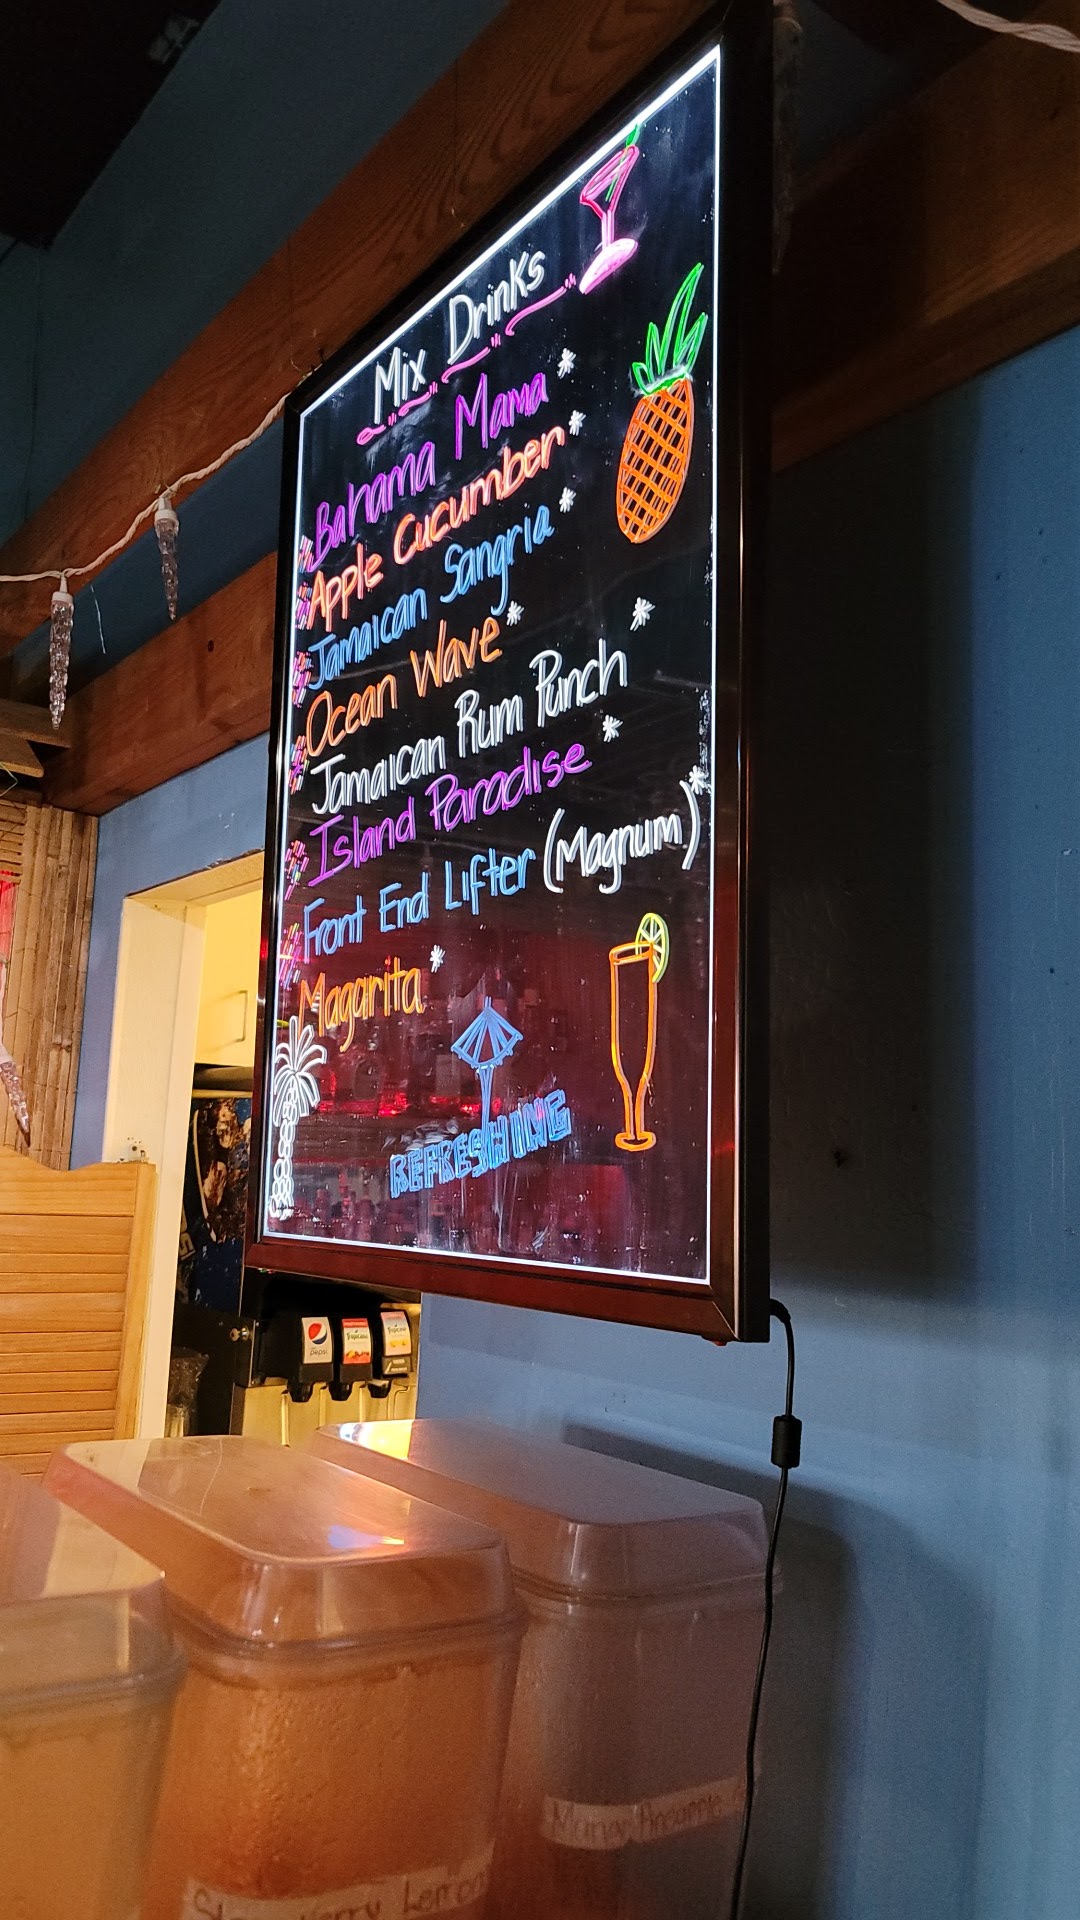 Mix Drinks
Bahama Mama *
Apple Cucumber *
Jamaican Sangria *
Ocean Wave *
Jamaican Rum Punch *
Island Paradise *
Front End Lifter (Magnum) *
Magarita *
REFRESHING
pepsi
Tropicana
Tropicana
Mango Pineapple